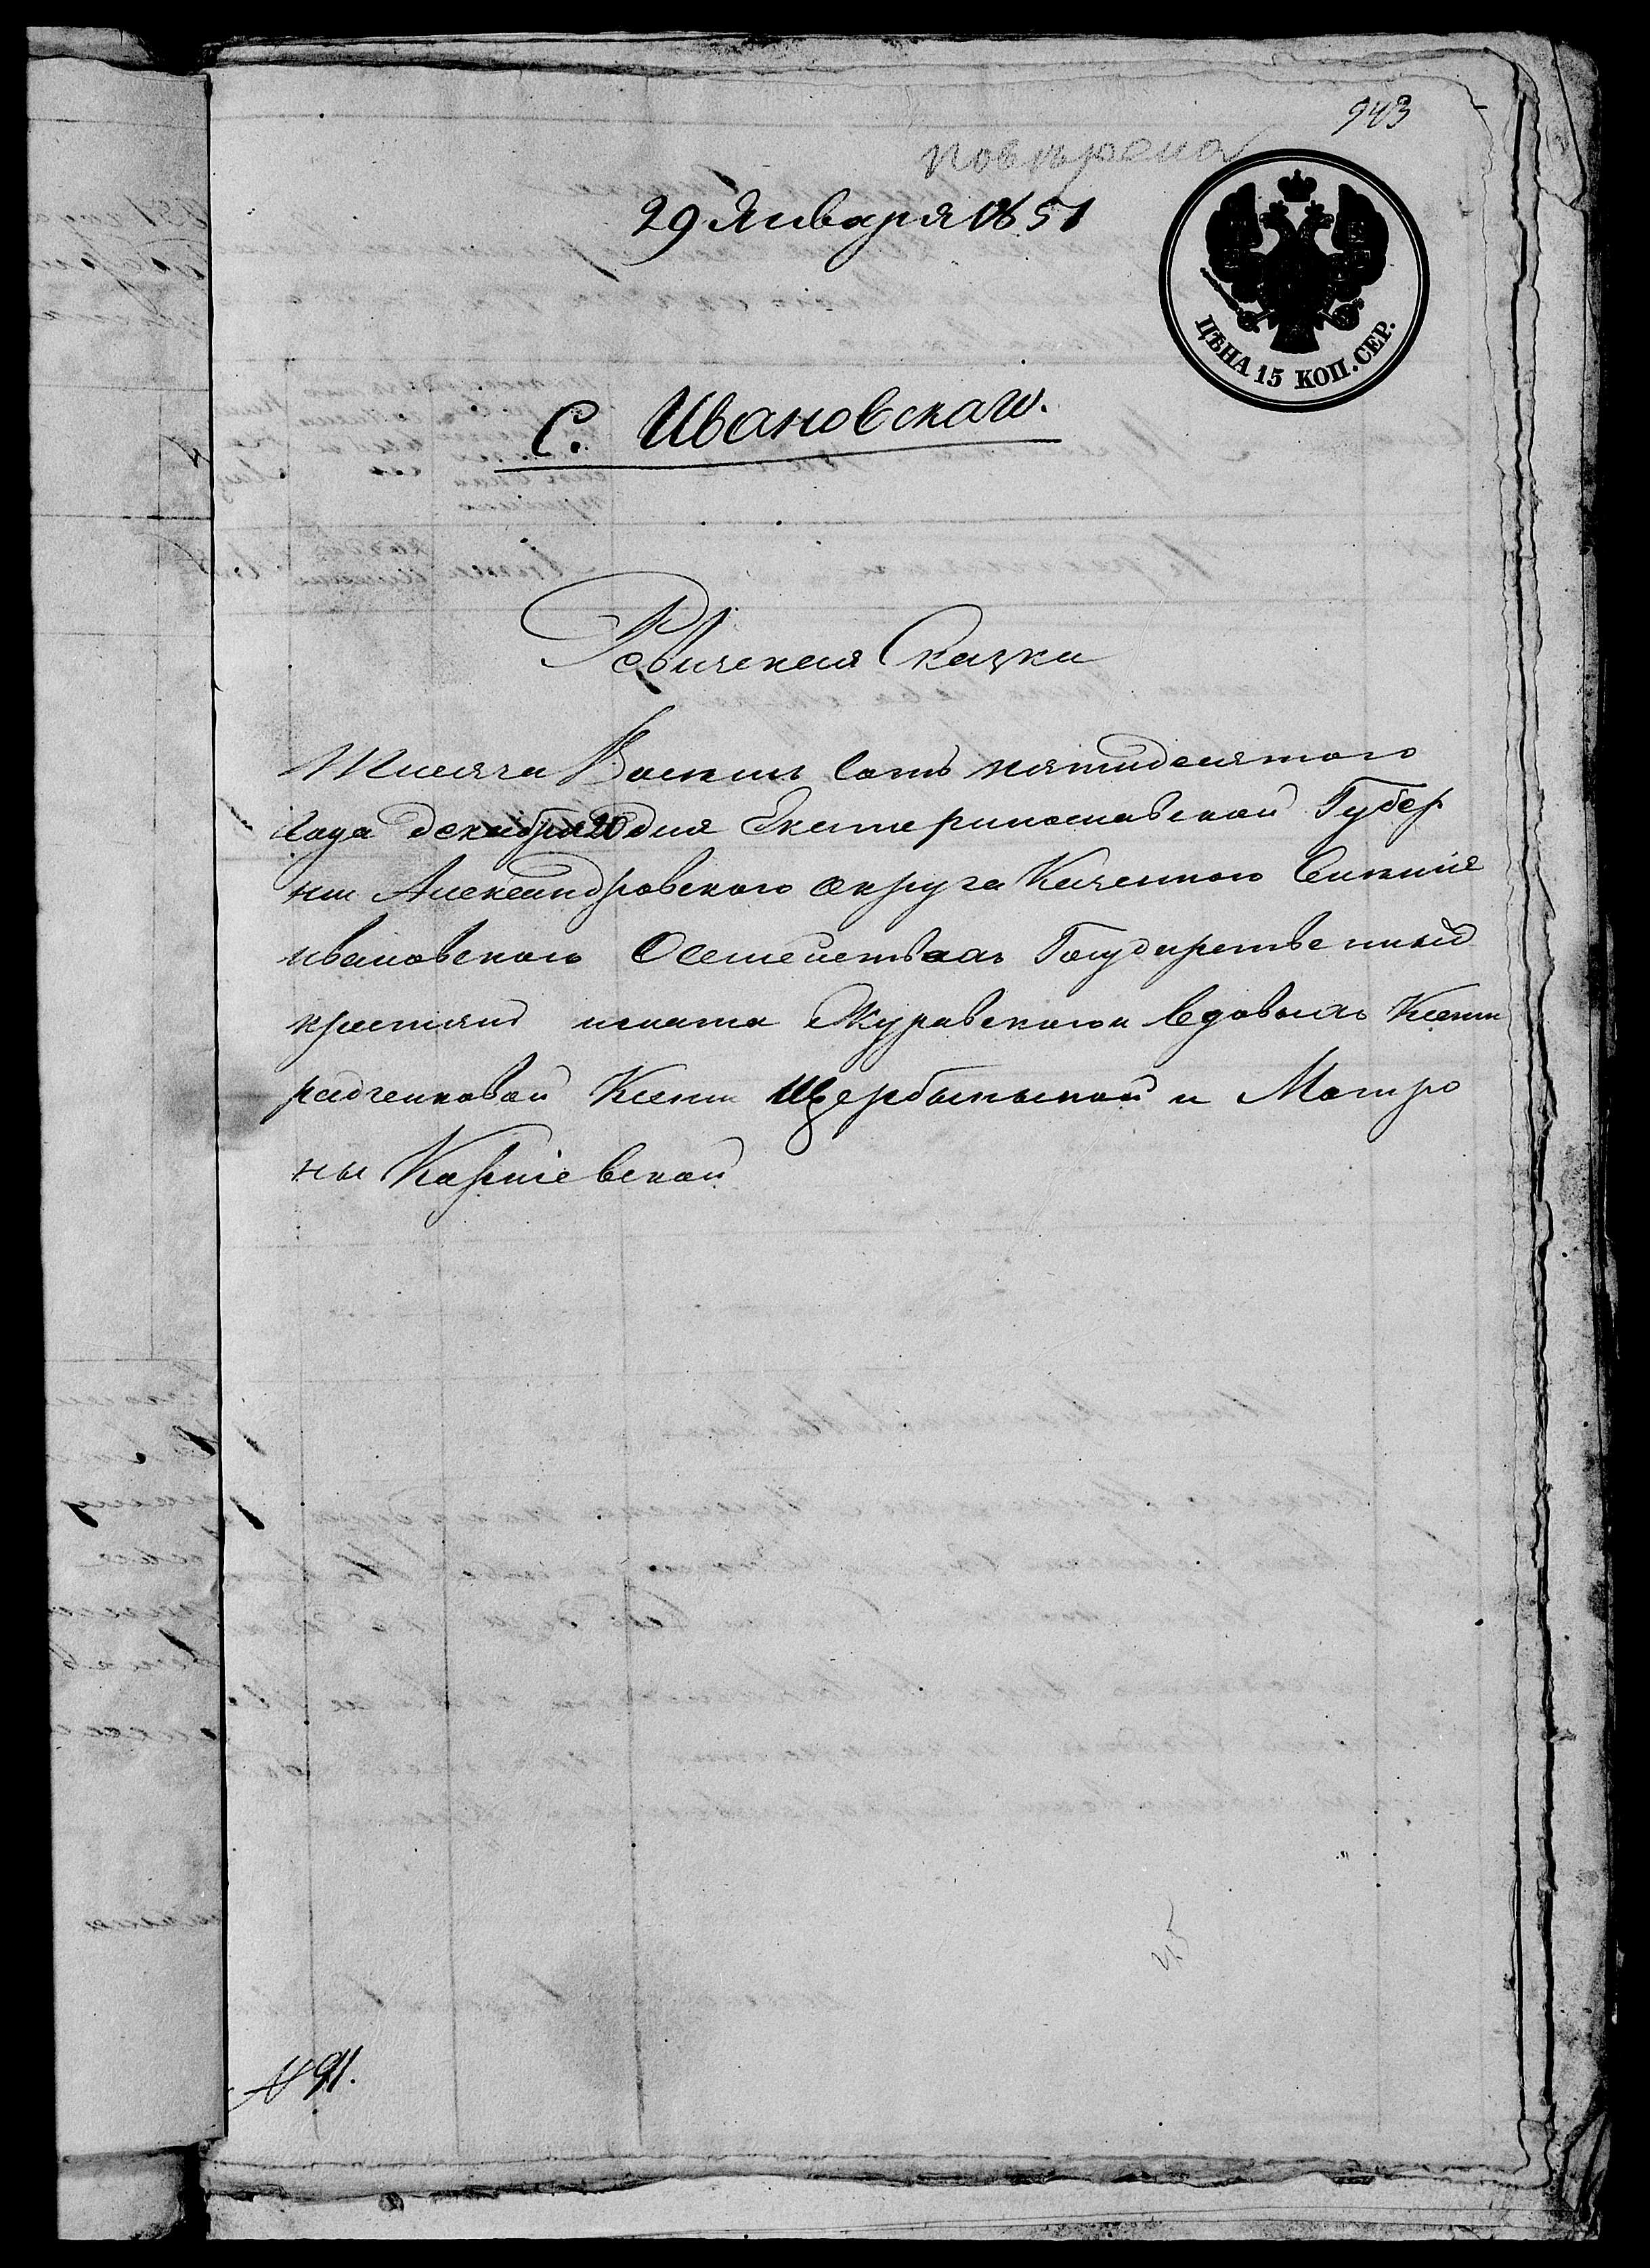 943
повѣрена
29 Января 1851
ЦѢНА 15 КОП. СЕР.
С. Ивановскаго.
Ревизская Сказка
Тисяча Восемь сотъ пятидесятого
Года декабря 20 дня Екатеринославской Губер
нии Александровского округа Казенного Селения
ивановского О Семействахъ Государственный
крестянъ игната Журавского и вдовыхъ Ксени
радченковой Ксени Щербыныной и Матро
ны Карпіевской
45
№ 91.